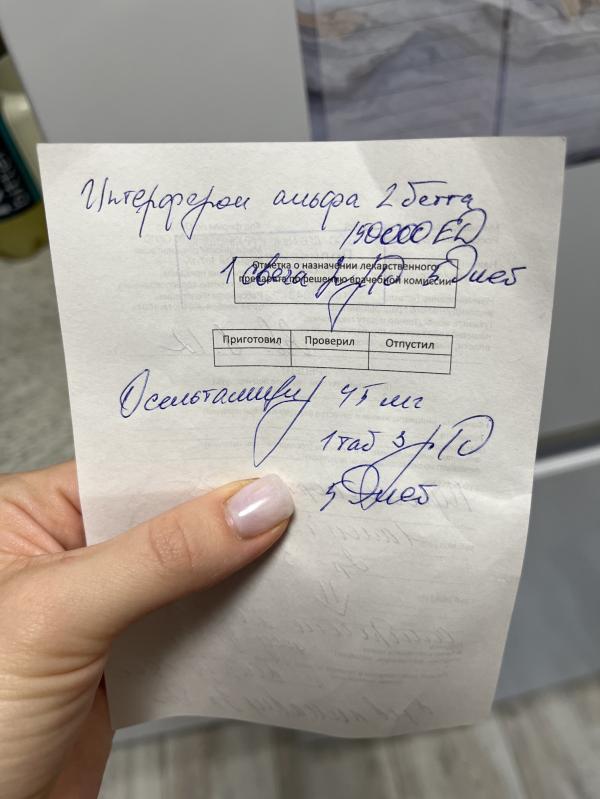 Интерферон альфа 2 бетта
150000 ЕД
Отметка о назначении лекарственного
препарата по решению врачебной комиссии
1 свеча р/D 5 Dней
Приготовил Проверил Отпустил
Осельтамивир 45 мг
1 таб 3 р/D
5 Dней